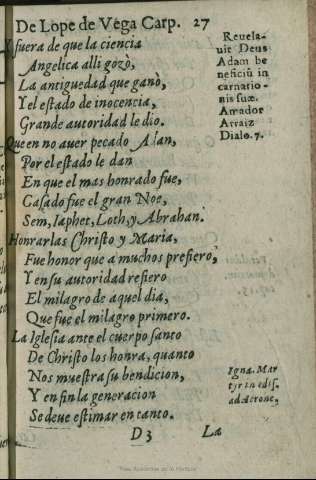 De Lope de Vega Carp. 27
Y fuera de que la ciencia
Angelica alli gozò,
La antiguedad que ganò,
Y el estado de inocencia,
Grande autoridad le dio.
Que en no auer pecado Adan,
Por el estado le dan
En que el mas honrado fue,
Casado fue el gran Noe,
Sem, Iaphet, Loth, y Abrahan.
Honrarlas Christo y Maria,
Fue honor que a muchos prefiero,
Y en su autoridad refiero
El milagro de aquel dia,
Que fue el milagro primero.
La Iglesia ante el cuerpo santo
De Christo los honra, quanto
Nos muestra su bendicion,
Y en fin la generacion
Se deue estimar en tanto.
Reuela-
uit Deus
Adam be
neficiū in
carnatio-
nis suæ.
Amador
Arraiz
Dialo. 7.
Igna. Mar
tyr in edis.
ad Aerone,
D 3 La